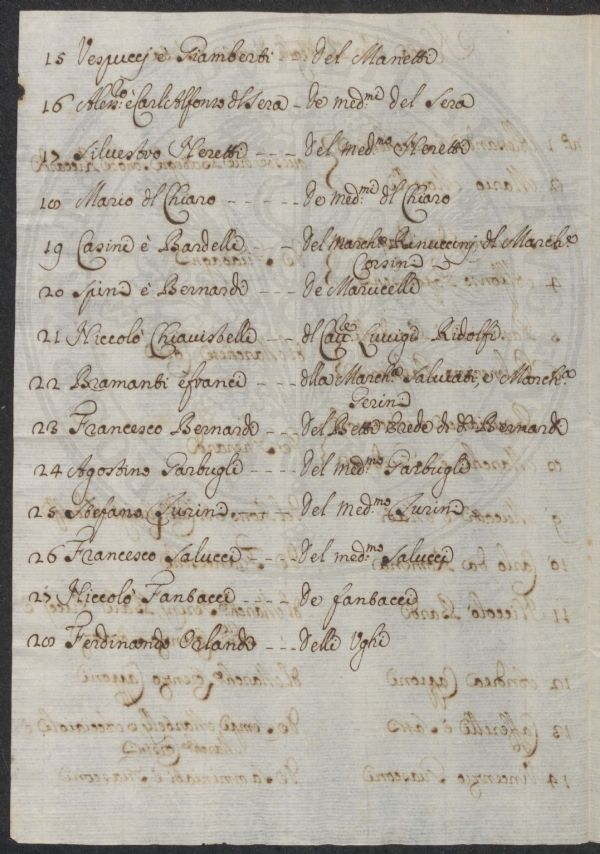 15 Vespucci è Giamberti Del Manetti
16 Aless.º è Carl'Alfonso del Sera - De med.mi del Sera
17 Silvestro Neretti - - - Del med.mo Neretti
18 Mario del Chiaro - - - - - De med.mi del Chiaro
19 Casini è Bardelli - - - Del March.e Rinuccinj, del March.e
Corsini
20 Spini è Bernardi - - - De Marucelli
21 Niccolò Chiavistelli - - - del Cav.e Luuigi Ridolfi
22 Bramanti è franci - - - della March.a Salviati, è March.a
Gerini
23 Francesco Bernardi - - Del Betti Erede di Bernardi
24 Agostino Garbugli - - - Del med.mo Garbugli
25 Stefano Zurini - - - Del med.mo Zurini
26 Francesco Salucci - - - Del med.mo Salucci
27 Niccolò Fanbacci - - - De fanbacci
28 Ferdinando Orlandi - - - Delli Ughi